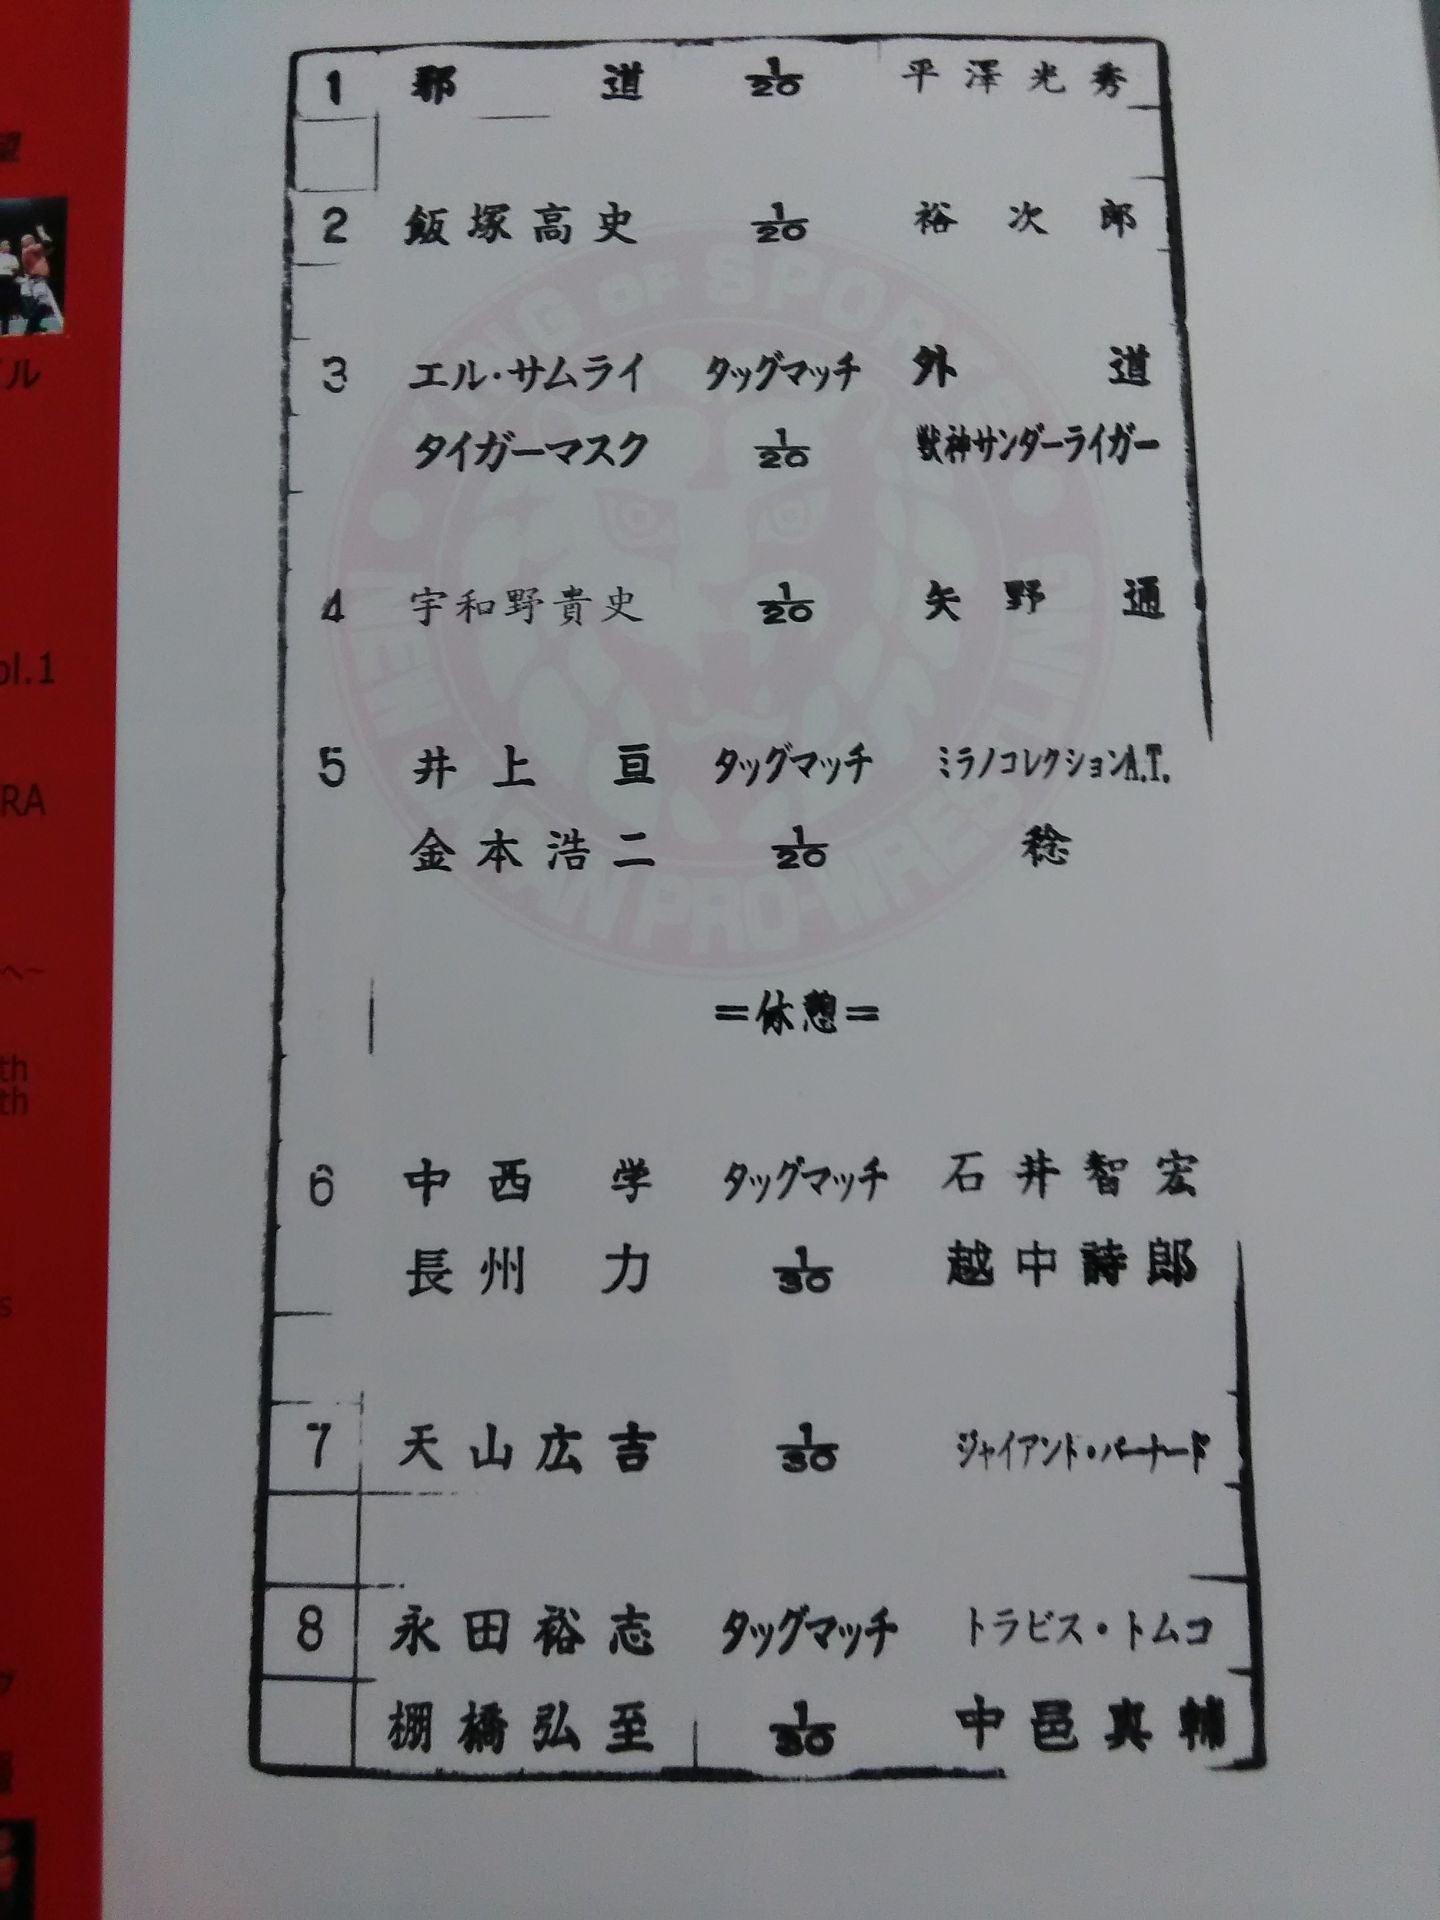 1 邪道 1/20 平澤光秀
2 飯塚高史 1/20 裕次郎
3 エル・サムライ タッグマッチ 外道
タイガーマスク 1/20 獣神サンダーライガー
4 宇和野貴史 1/20 矢野通
5 井上亘 タッグマッチ ミラノコレクションA.T.
金本浩二 1/20 稔
=休憩=
6 中西学 タッグマッチ 石井智宏
長州力 1/30 越中詩郎
7 天山広吉 1/30 ジャイアント・バーナード
8 永田裕志 タッグマッチ トラビス・トムコ
棚橋弘至 1/30 中邑真輔
KING OF SPORTS
NEW JAPAN PRO-WRESTLING
望
イル
ol.1
RA
へ~
th
th
s